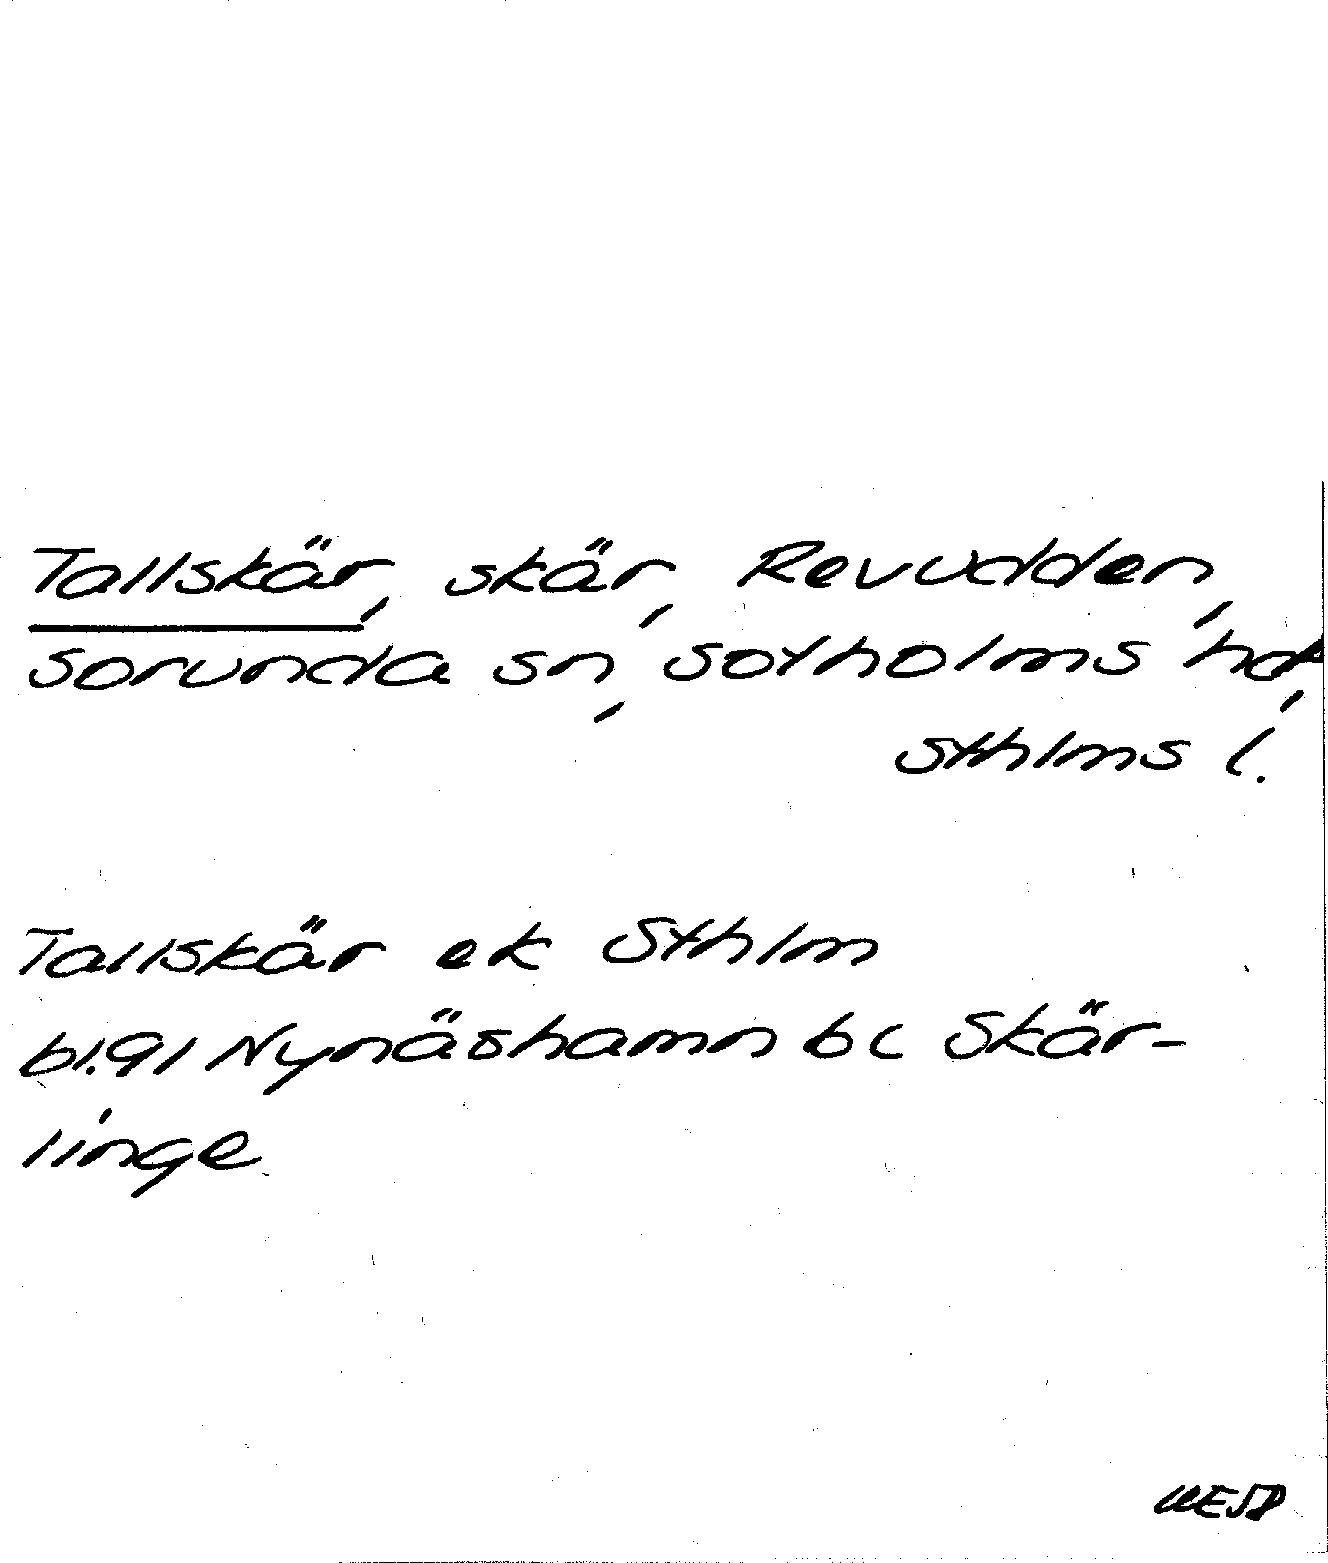 Tallskär, skär, Revudden,
Sorunda sn, Sotholms hd,
Sthlms l.
Tallskär ek Sthlm
bl.91 Nynäshamn bc Skär-
linge